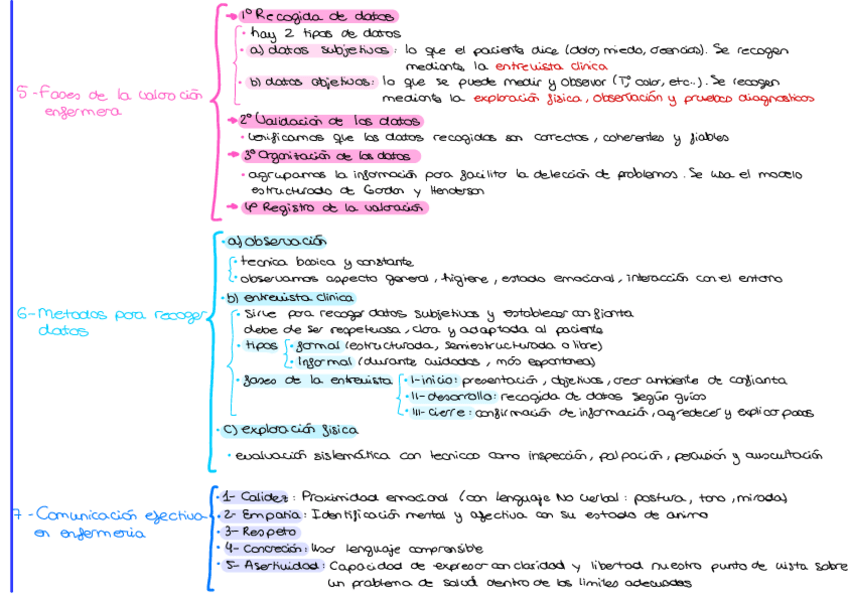 1º Recogida de datos
· hay 2 tipos de datos
· a) datos subjetivos: lo que el paciente dice (dolor, miedo, creencias). Se recogen
mediante la entrevista clínica
· b) datos objetivos: lo que se puede medir y observar (Tº, color, etc..). Se recogen
mediante la exploración física, observación y pruebas diagnosticos
5-Fases de la valoración
enfermera
2º Validación de los datos
· verificamos que los datos recogidos son correctos, coherentes y fiables
3º Organización de los datos
· agrupamos la información para facilitar la detección de problemas. Se usa el modelo
estructurado de Gordon y Henderson
4º Registro de la valoración
· a) observación
· tecnica basica y constante
· observamos aspecto general, higiene, estado emocional, interacción con el entorno
· b) entrevista clinica
· Sirve para recoger datos subjetivos y establecer confianza
debe de ser respetuosa, clara y adaptada al paciente
6-Metodos para recoger
datos
· tipos · formal (estructurada, semiestructurada o libre)
· Informal (durante cuidados, más espontanea)
· fases de la entrevista · I-inicio: presentación, objetivos, crear ambiente de confianza
· II-desarrollo: recogida de datos según guías
· III-cierre: confirmación de información, agradecer y explicar pasos
· c) exploración fisica
· evaluación sistemática con tecnicas como inspección, palpación, percusión y auscultación
7-Comunicación efectiva
en enfermeria
· 1- Calidez: Proximidad emocional (con lenguaje No verbal: postura, tono, mirada)
· 2- Empatia: Identificación mental y afectiva con su estado de animo
· 3- Respeto
· 4- Concreción: Usar lenguaje comprensible
· 5- Asertividad: Capacidad de expresar con claridad y libertad nuestro punto de vista sobre
un problema de salud dentro de los limites adecuados